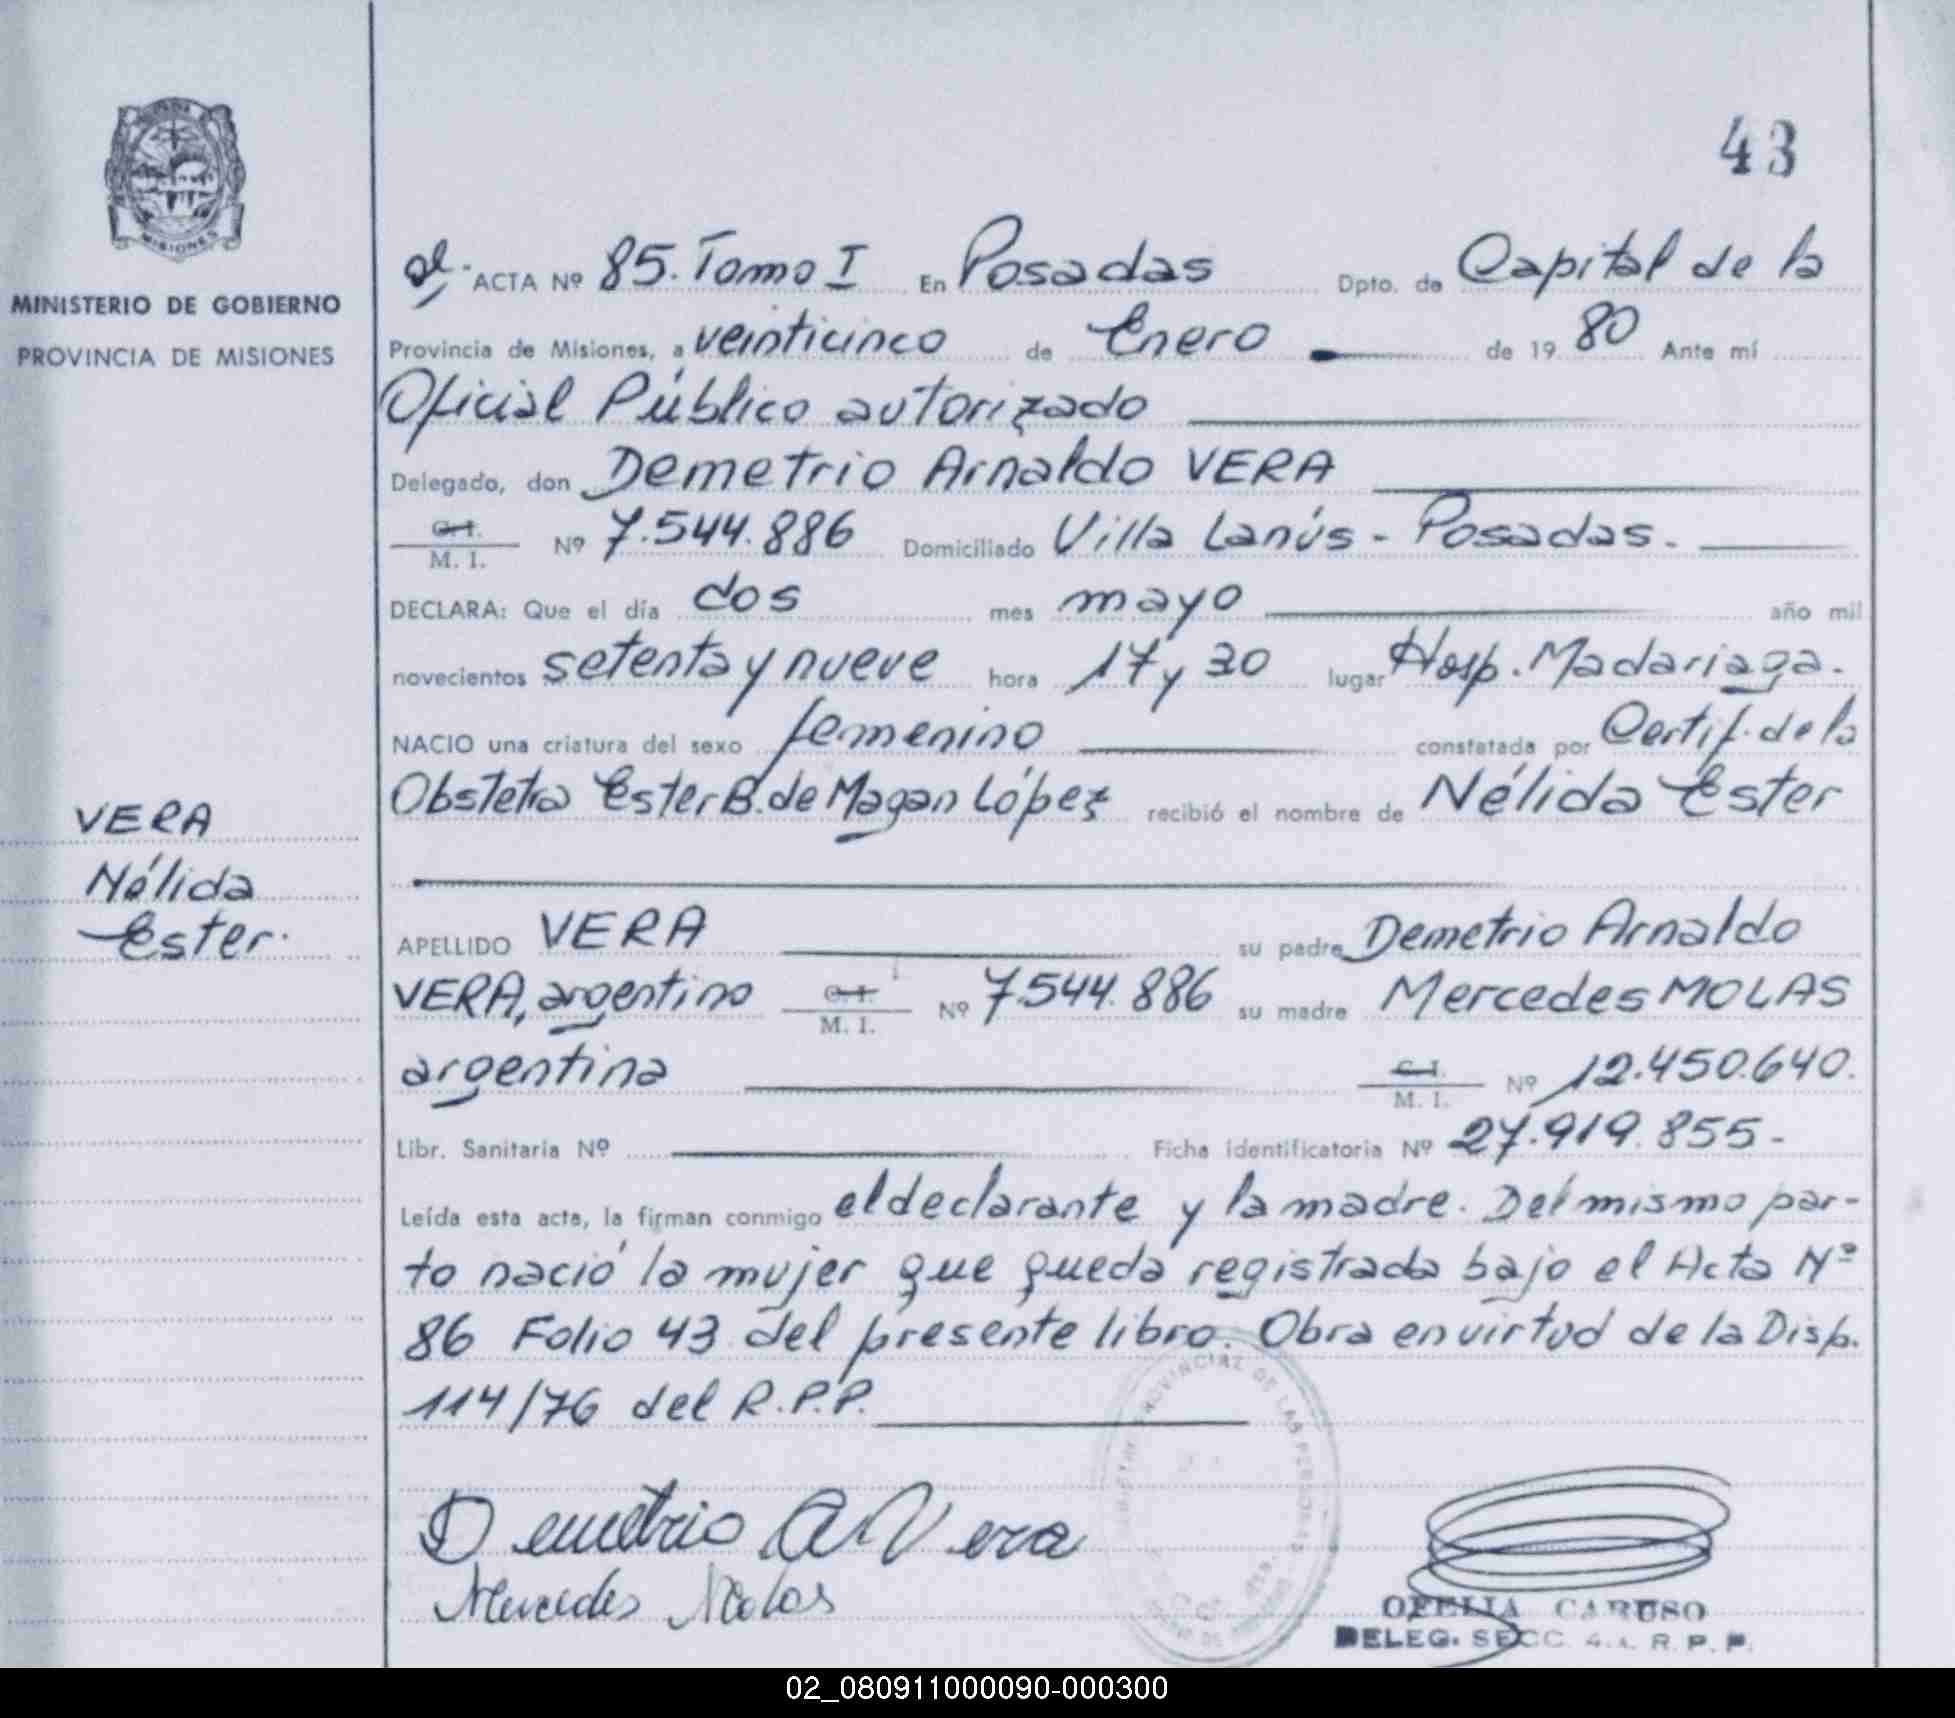 MISIONES
MINISTERIO DE GOBIERNO
PROVINCIA DE MISIONES
VERA
Nélida
Ester.
43
ACTA Nº 85. Tomo I En Posadas Dpto. de Capital de la
Provincia de Misiones, a veinticinco de Enero de 1980 Ante mí
Oficial Público autorizado
Delegado, don Demetrio Arnaldo VERA
C. I.
M. I. Nº 7.544.886 Domiciliado Villa Lanús - Posadas.
DECLARA: Que el día dos mes mayo año mil
novecientos setenta y nueve hora 17 y 30 lugar Hosp. Madariaga.
NACIO una criatura del sexo femenino constatada por Certif. de la
Obstetra Ester B. de Magan López recibió el nombre de Nélida Ester
APELLIDO VERA su padre Demetrio Arnaldo
VERA, argentino C. I. M. I. Nº 7.544.886 su madre Mercedes MOLAS
argentina C. I. M. I. Nº 12.450.640.
Libr. Sanitaria Nº Ficha identificatoria Nº 27.919.855-
Leída esta acta, la firman conmigo el declarante y la madre. Del mismo par-
to nació la mujer que queda registrada bajo el Acta Nº
86 Folio 43 del presente libro. Obra en virtud de la Disp.
114/76 del R.P.P.
Demetrio A Vera
Mercedes Molas
PROVINCIAL DE LAS PERSONAS
OFELIA CARUSO
DELEG. SECC. 4.a. R. P. P.
02_080911000090-000300